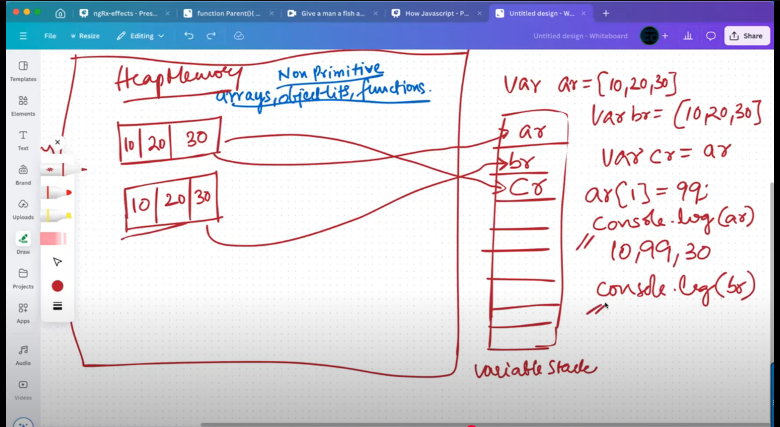 ngRx-effects - Pres...
function Parent(){ ...
Give a man a fish a...
How Javascript - P...
Untitled design - W...
File
Resize
Editing
Untitled design - Whiteboard
Share
Templates
Elements
Text
Brand
Uploads
Draw
Projects
Apps
Audio
Videos
Heap Memory
Non Primitive
arrays, object lits, functions.
10 20 30
10 20 30
ar
br
Cr
Variable Stack
Var ar = [10,20,30]
Var br = [10,20,30]
Var Cr = ar
ar[1] = 99;
console.log(ar)
// 10,99,30
console.log(br)
//